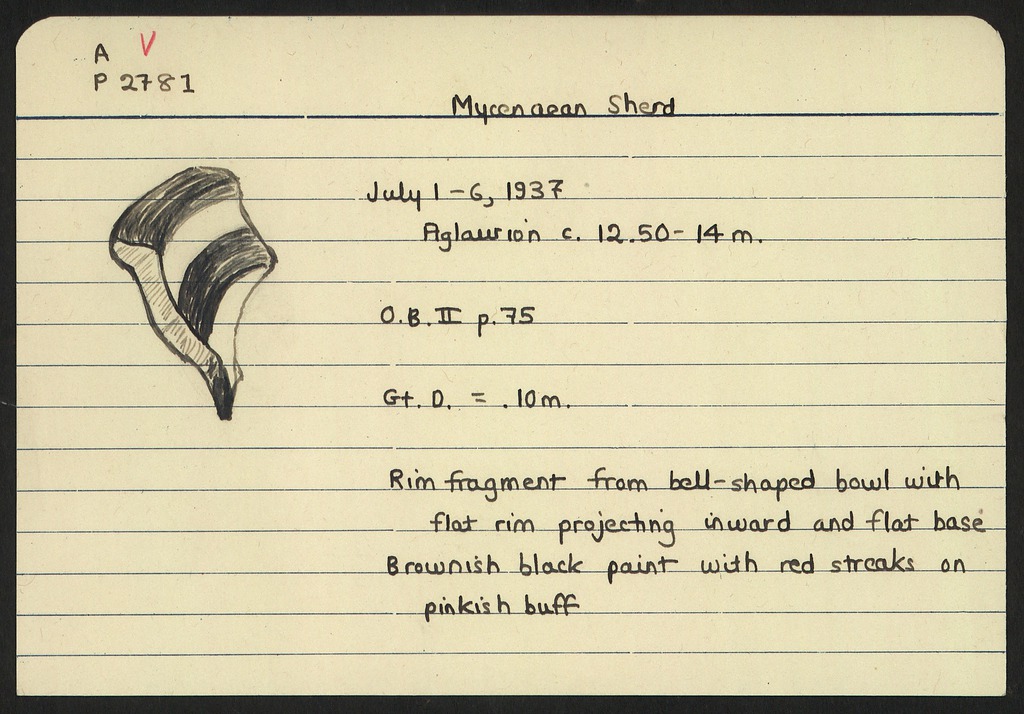 A V
P 2781
Mycenaean Sherd
July 1-6, 1937
Aglaurion c. 12.50-14 m.
O.B. II p.75
Gt. D. = .10m.
Rim fragment from bell-shaped bowl with
flat rim projecting inward and flat base
Brownish black paint with red streaks on
pinkish buff